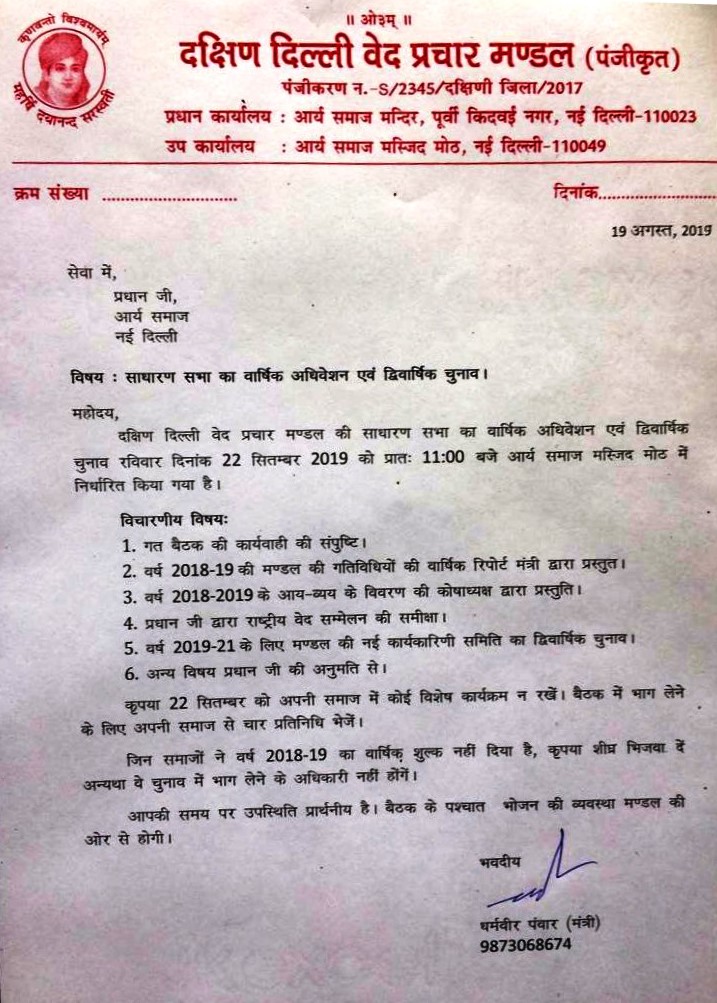 ॥ ओ३म् ॥
कृण्वन्तो विश्वमार्यम्
महर्षि दयानन्द सरस्वती
दक्षिण दिल्ली वेद प्रचार मण्डल (पंजीकृत)
पंजीकरण न.-S/2345/दक्षिणी जिला/2017
प्रधान कार्यालय : आर्य समाज मन्दिर, पूर्वी किदवई नगर, नई दिल्ली-110023
उप कार्यालय : आर्य समाज मस्जिद मोठ, नई दिल्ली-110049
क्रम संख्या ............................ दिनांक........................
19 अगस्त, 2019
सेवा में,
प्रधान जी,
आर्य समाज
नई दिल्ली
विषय : साधारण सभा का वार्षिक अधिवेशन एवं द्विवार्षिक चुनाव।
महोदय,
दक्षिण दिल्ली वेद प्रचार मण्डल की साधारण सभा का वार्षिक अधिवेशन एवं द्विवार्षिक
चुनाव रविवार दिनांक 22 सितम्बर 2019 को प्रातः 11:00 बजे आर्य समाज मस्जिद मोठ में
निर्धारित किया गया है।
विचारणीय विषयः
1. गत बैठक की कार्यवाही की संपुष्टि।
2. वर्ष 2018-19 की मण्डल की गतिविधियों की वार्षिक रिपोर्ट मंत्री द्वारा प्रस्तुत।
3. वर्ष 2018-2019 के आय-व्यय के विवरण की कोषाध्यक्ष द्वारा प्रस्तुति।
4. प्रधान जी द्वारा राष्ट्रीय वेद सम्मेलन की समीक्षा।
5. वर्ष 2019-21 के लिए मण्डल की नई कार्यकारिणी समिति का द्विवार्षिक चुनाव।
6. अन्य विषय प्रधान जी की अनुमति से।
कृपया 22 सितम्बर को अपनी समाज में कोई विशेष कार्यक्रम न रखें। बैठक में भाग लेने
के लिए अपनी समाज से चार प्रतिनिधि भेजें।
जिन समाजों ने वर्ष 2018-19 का वार्षिक शुल्क नहीं दिया है, कृपया शीघ्र भिजवा दें
अन्यथा वे चुनाव में भाग लेने के अधिकारी नहीं होंगें।
आपकी समय पर उपस्थिति प्रार्थनीय है। बैठक के पश्चात भोजन की व्यवस्था मण्डल की
ओर से होगी।
भवदीय
धर्मवीर पंवार (मंत्री)
9873068674